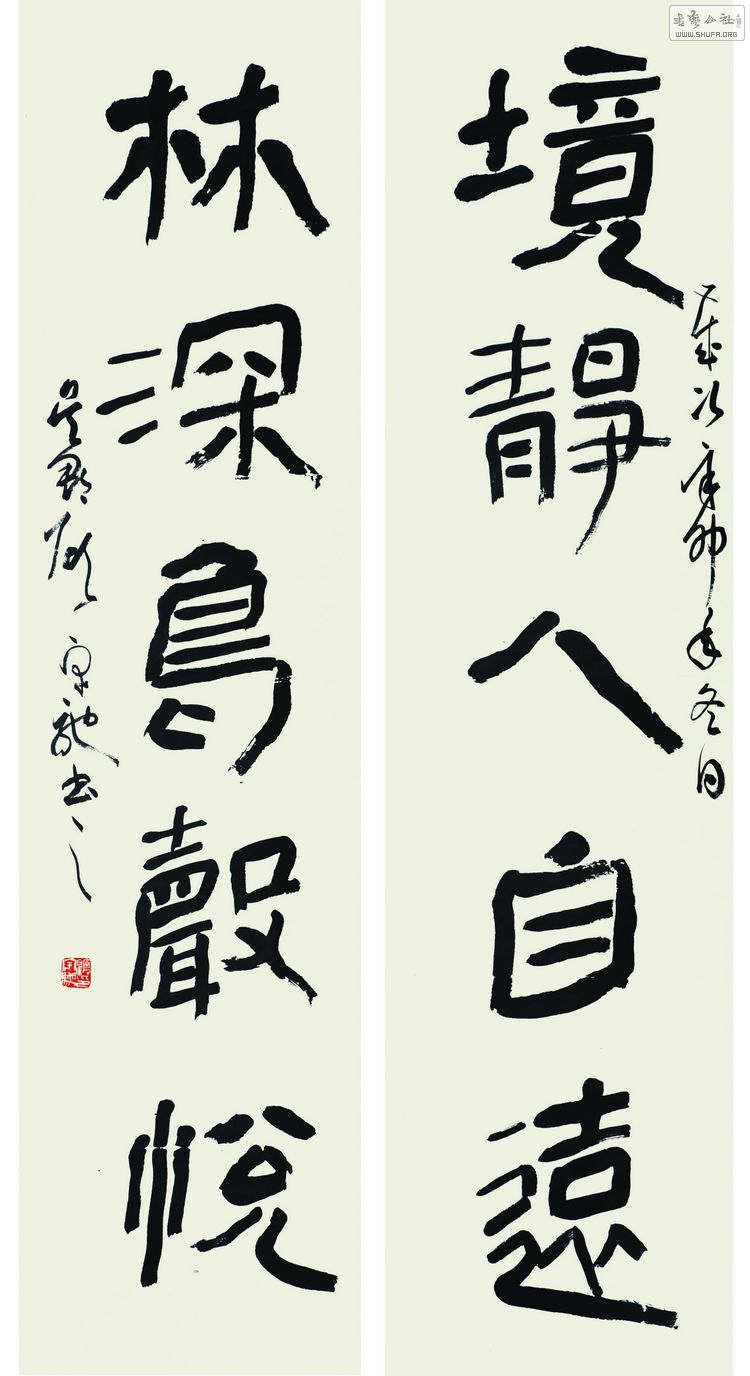 境靜人自遠
歲次辛卯年冬日
林深鳥聲悅
書之
書藝公社
WWW.SHUFA.ORG